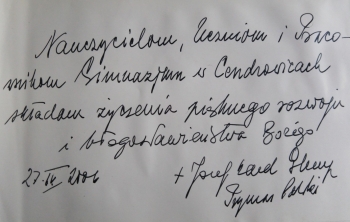 Nauczycielom, Uczniom i Praco-
wnikom Gimnazjum w Cendrowicach
składam życzenia pięknego rozwoju
i błogosławieństwa Bożego
27 IV 2006 + Józef Card Glemp
Prymas Polski